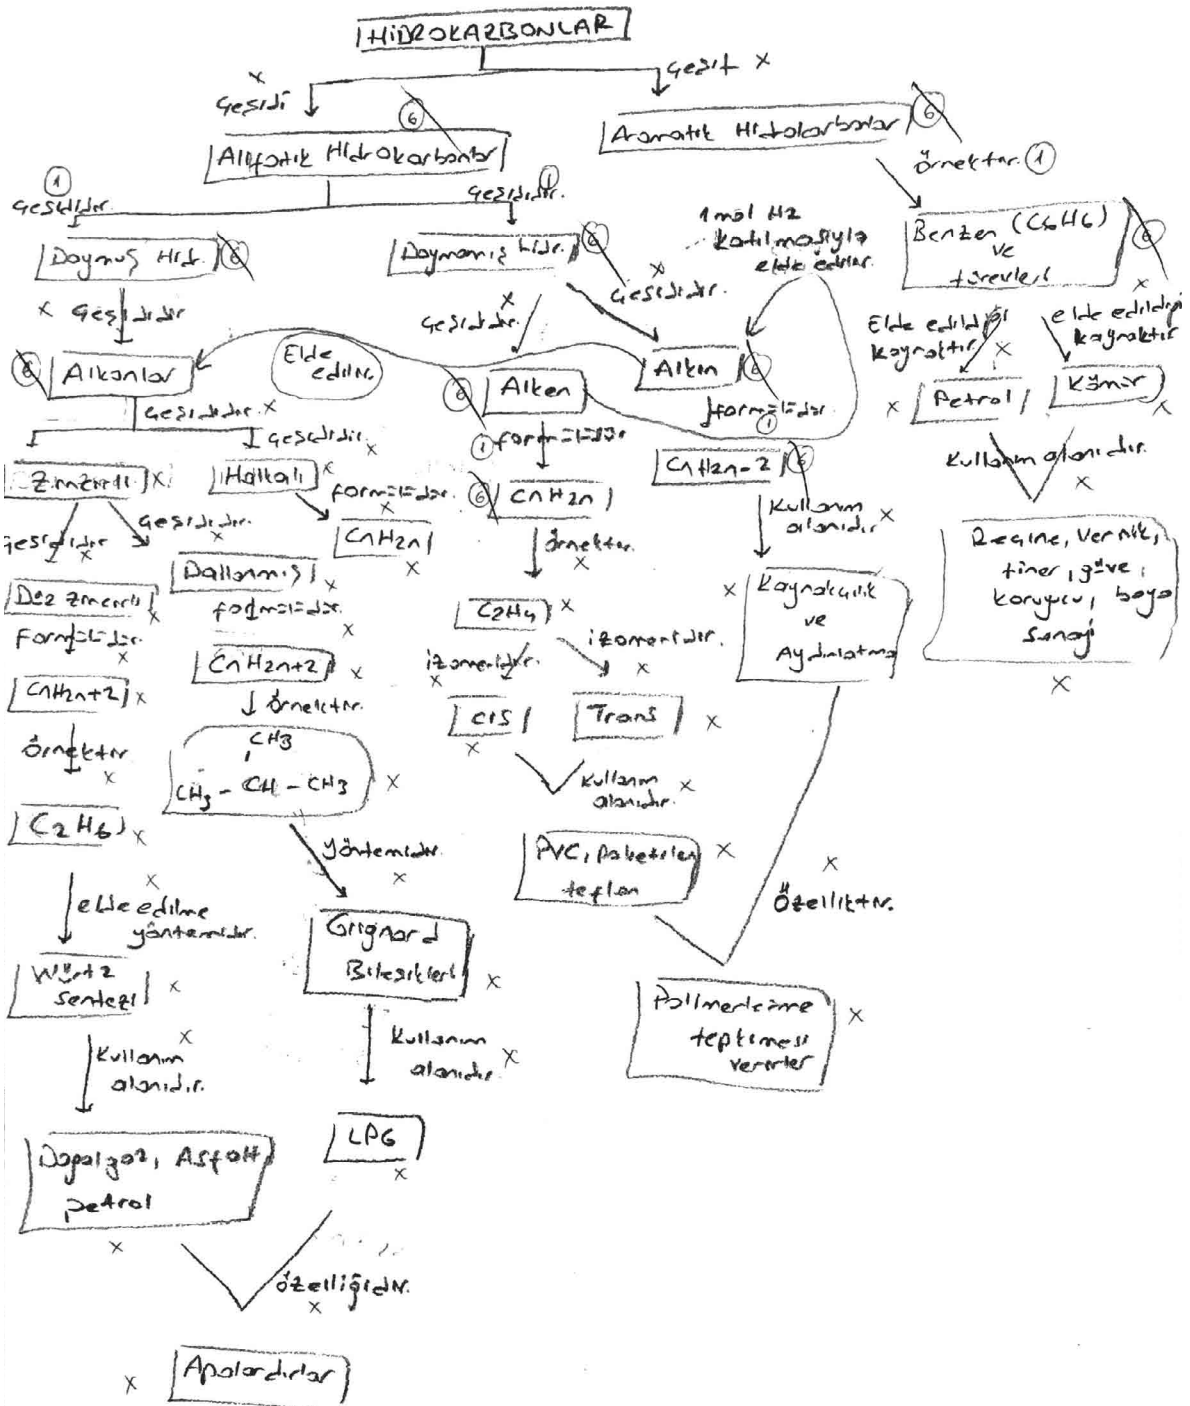 HİDROKARBONLAR
x
Çeşidi
Çeşit x
6
Alifatik Hidrokarbonlar
Aromatik Hidrokarbonlar 6
Örnektir. 1
1
Çeşididir.
Çeşididir. 1
Doymuş Hid. 6
Doymamış hidr. 6
1 mol H2
katılmasıyla
elde edilir.
Benzen (C6H6)
ve
türevleri
6
x Çeşididir
x
Çeşididir.
x
Çeşididir.
x
Elde edildiği
kaynaktır.
x
x
elde edildiği
kaynaktır
6 Alkanlar
Elde
edilir.
6 Alken
Alkin 6
x Petrol
Kömür
x
Çeşididir. x
Çeşididir.
x
1 formülüdür
formülüdür.
1
Kullanım alanıdır.
x
Zincirli x
Halkalı x
formülüdür.
x
6 CnH2n
CnH2n-2 6
Çeşididir
x
Çeşididir.
x
CnH2n
x
örnektir.
x
Kullanım
alanıdır x
Reçine, Vernik,
tiner, güve,
koruyucu, boya
sanayi
x
Düz zincirli
x
Dallanmış x
C2H4 x
x Kaynakçılık
ve
Aydınlatma
Formülüdür.
x
formülüdür.
x
izomeridir.
x
izomeridir.
x
CnH2n+2 x
CnH2n+2 x
örnektir
x
örnektir.
CIS
x
Trans x
CH3
CH3 - CH - CH3 x
Kullanım x
alanıdır.
C2H6 x
yöntemidir.
x
PVC, paketrlen x
teflon
x
Özelliktir.
x
elde edilme
yöntemidir.
Grignard
Bileşikleri x
Würtz
sentezi x
Polimerleşme x
tepkimesi
verirler
x
Kullanım
alanıdır.
Kullanım
alanıdır. x
Doğalgaz, Asfalt
petrol
x
LPG
x
özelliğidir.
x
x Apolardırlar